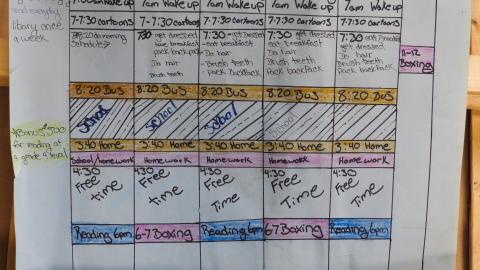 read everyday
library once
a week
*Bonus $500
for reading at
a grade 4 level
7:00am Wake up
7am Wake up
7am Wake up
7am Wake up
7am Wake up
7-7:30 cartoons
7-7:30 cartoons
7-7:30 cartoons
7-7:30 cartoons
7-7:30 cartoons
7:20 do morning
Schedule
7:30 - get Dressed
have breakfast
pack back pack
Do hair
Brush teeth
7:30 - get Dressed
- eat breakfast
Do hair
- Brush teeth
- Pack Backpack
7:30 get dressed
eat breakfast
Do hair
Brush teeth
pack backpack
7:30 eat Breakfast
get dressed
Do hair
Brush teeth
Pack backPack
11-12
Boxing
8:20 Bus
8:20 Bus
8:20 Bus
8:20 Bus
8:20 Bus
School
School
School
School
3:40 Home
3:40 Home
3:40 Home
3:40 Home
3:40 Home
School/homework
Homework
Homework
Homework
Homework
4:30
Free
time
4:30
Free
time
4:30
Free
Time
4:30
Free
Time
4:30
Free
Time
Reading 6pm
6-7 Boxing
Reading 6pm
6-7 Boxing
Reading 6pm